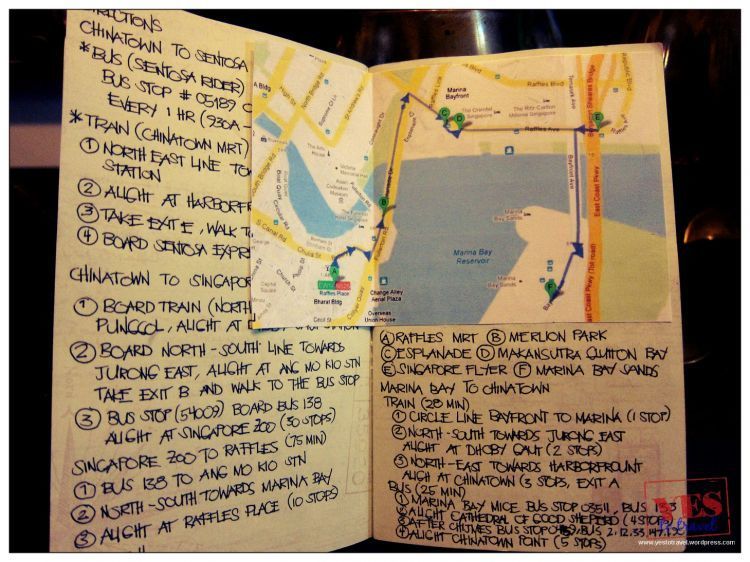 CHINATOWN TO SENTOSA
* BUS (SENTOSA RIDER)
BUS STOP # 05189
EVERY 1 HR (930A -
* TRAIN (CHINATOWN MRT)
① NORTH EAST LINE
STATION
② ALIGHT AT HARBORFR
③ TAKE EXIT E, WALK
④ BOARD SENTOSA EXPR
CHINATOWN TO SINGAPO
① BOARD TRAIN (NORTH
PUNGGOL, ALIGHT AT
② BOARD NORTH-SOUTH LINE TOWARDS
JURONG EAST, ALIGHT AT ANG MO KIO STN
TAKE EXIT B AND WALK TO THE BUS STOP
③ BUS STOP (54009) BOARD BUS 138
ALIGHT AT SINGAPORE ZOO (30 STOPS)
SINGAPORE ZOO TO RAFFLES (75 MIN)
① BUS 138 TO ANG MO KIO STN
② NORTH-SOUTH TOWARDS MARINA BAY
③ ALIGHT AT RAFFLES PLACE (10 STOPS)
A Bldg
Raffles Blvd
Marina
Bayfront
The Oriental
Singapore
The Ritz-Carlton
Millenia Singapore
Raffles Ave
Temasek Ave
Bayfront Ave
East Coast Pkwy (Toll road)
East Coast Pkwy
The Arts
House
Victoria
Memorial Hall
Asian
Civilisation
Museum
South Bridge Rd
North Bridge Rd
Boat Quay
Circular Rd
S Canal Rd
Chulia St
Church St
Marina Bay
Reservoir
Marina
Bay Sands
Marina
Bay Sands
Raffles Place
Bharat Bldg
Change Alley
Aerial Plaza
Overseas
Union House
Capital
Square
Cecil St
Ⓐ RAFFLES MRT Ⓑ MERLION PARK
Ⓒ ESPLANADE Ⓓ MAKANSUTRA GLUTTON BAY
Ⓔ SINGAPORE FLYER Ⓕ MARINA BAY SANDS
MARINA BAY TO CHINATOWN
TRAIN (28 MIN)
① CIRCLE LINE BAYFRONT TO MARINA (1 STOP)
② NORTH-SOUTH TOWARDS JURONG EAST
ALIGHT AT DHOBY GAUT (2 STOPS)
③ NORTH-EAST TOWARDS HARBORFROUNT
ALIGH AT CHINATOWN (3 STOPS, EXIT A
BUS (25 MIN)
① MARINA BAY MICE BUS STOP 03511, BUS 133
② ALIGHT CATHEDRAL OF GOOD SHEPERD (4 STOPS
③ AFTER CHIJMES BUS STOP BUS 2,12,33,147
④ ALIGHT CHINATOWN POINT (5 STOPS)
YES
to travel
www.yestotravel.wordpress.com